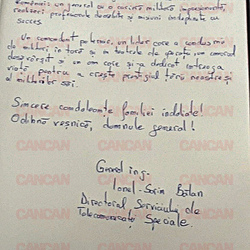 României: un general cu o carieră militară impresionantă,
realizări profesionale deosebite și misiuni îndeplinite cu
succes.
Un comandant puternic, un lider care a condus mii
de militari în țară și în teatrele de operații, un camarad
desăvârșit și un om care și-a dedicat întreaga
viață pentru a crește prestigiul țării noastre și
al militarilor săi.
Sincere condoleanțe familiei îndoliate!
Odihnă veșnică, domnule general!
General ing.
Ionel-Sorin Bălan
Directorul Serviciului de
Telecomunicații Speciale.
CANCAN CANCAN CANCAN